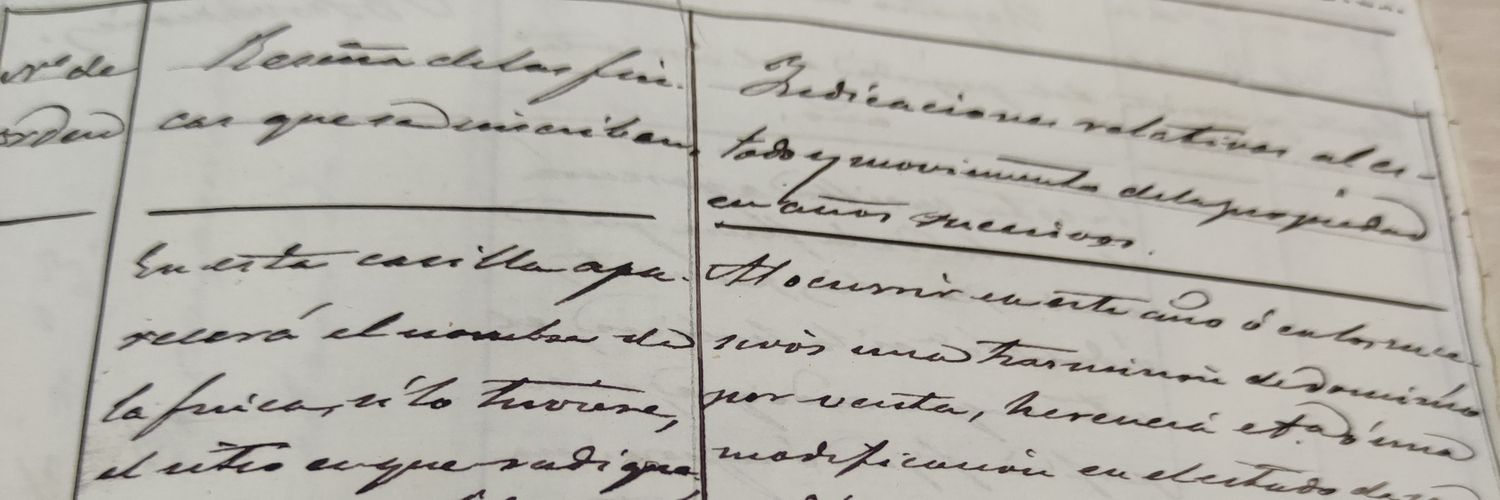 nº de
orden
Reseña de las fin-
cas que se inscriben
En esta casilla apa-
recerá el nombre de
la finca, si lo tuviere,
el sitio en que radique
Indicaciones relativas al es-
tado y movimiento de la propiedad
en años sucesivos.
Al ocurrir en este año ó en los suce-
sivos una trasmision de dominio
por venta, herencia etca ó una
modificación en el estado de